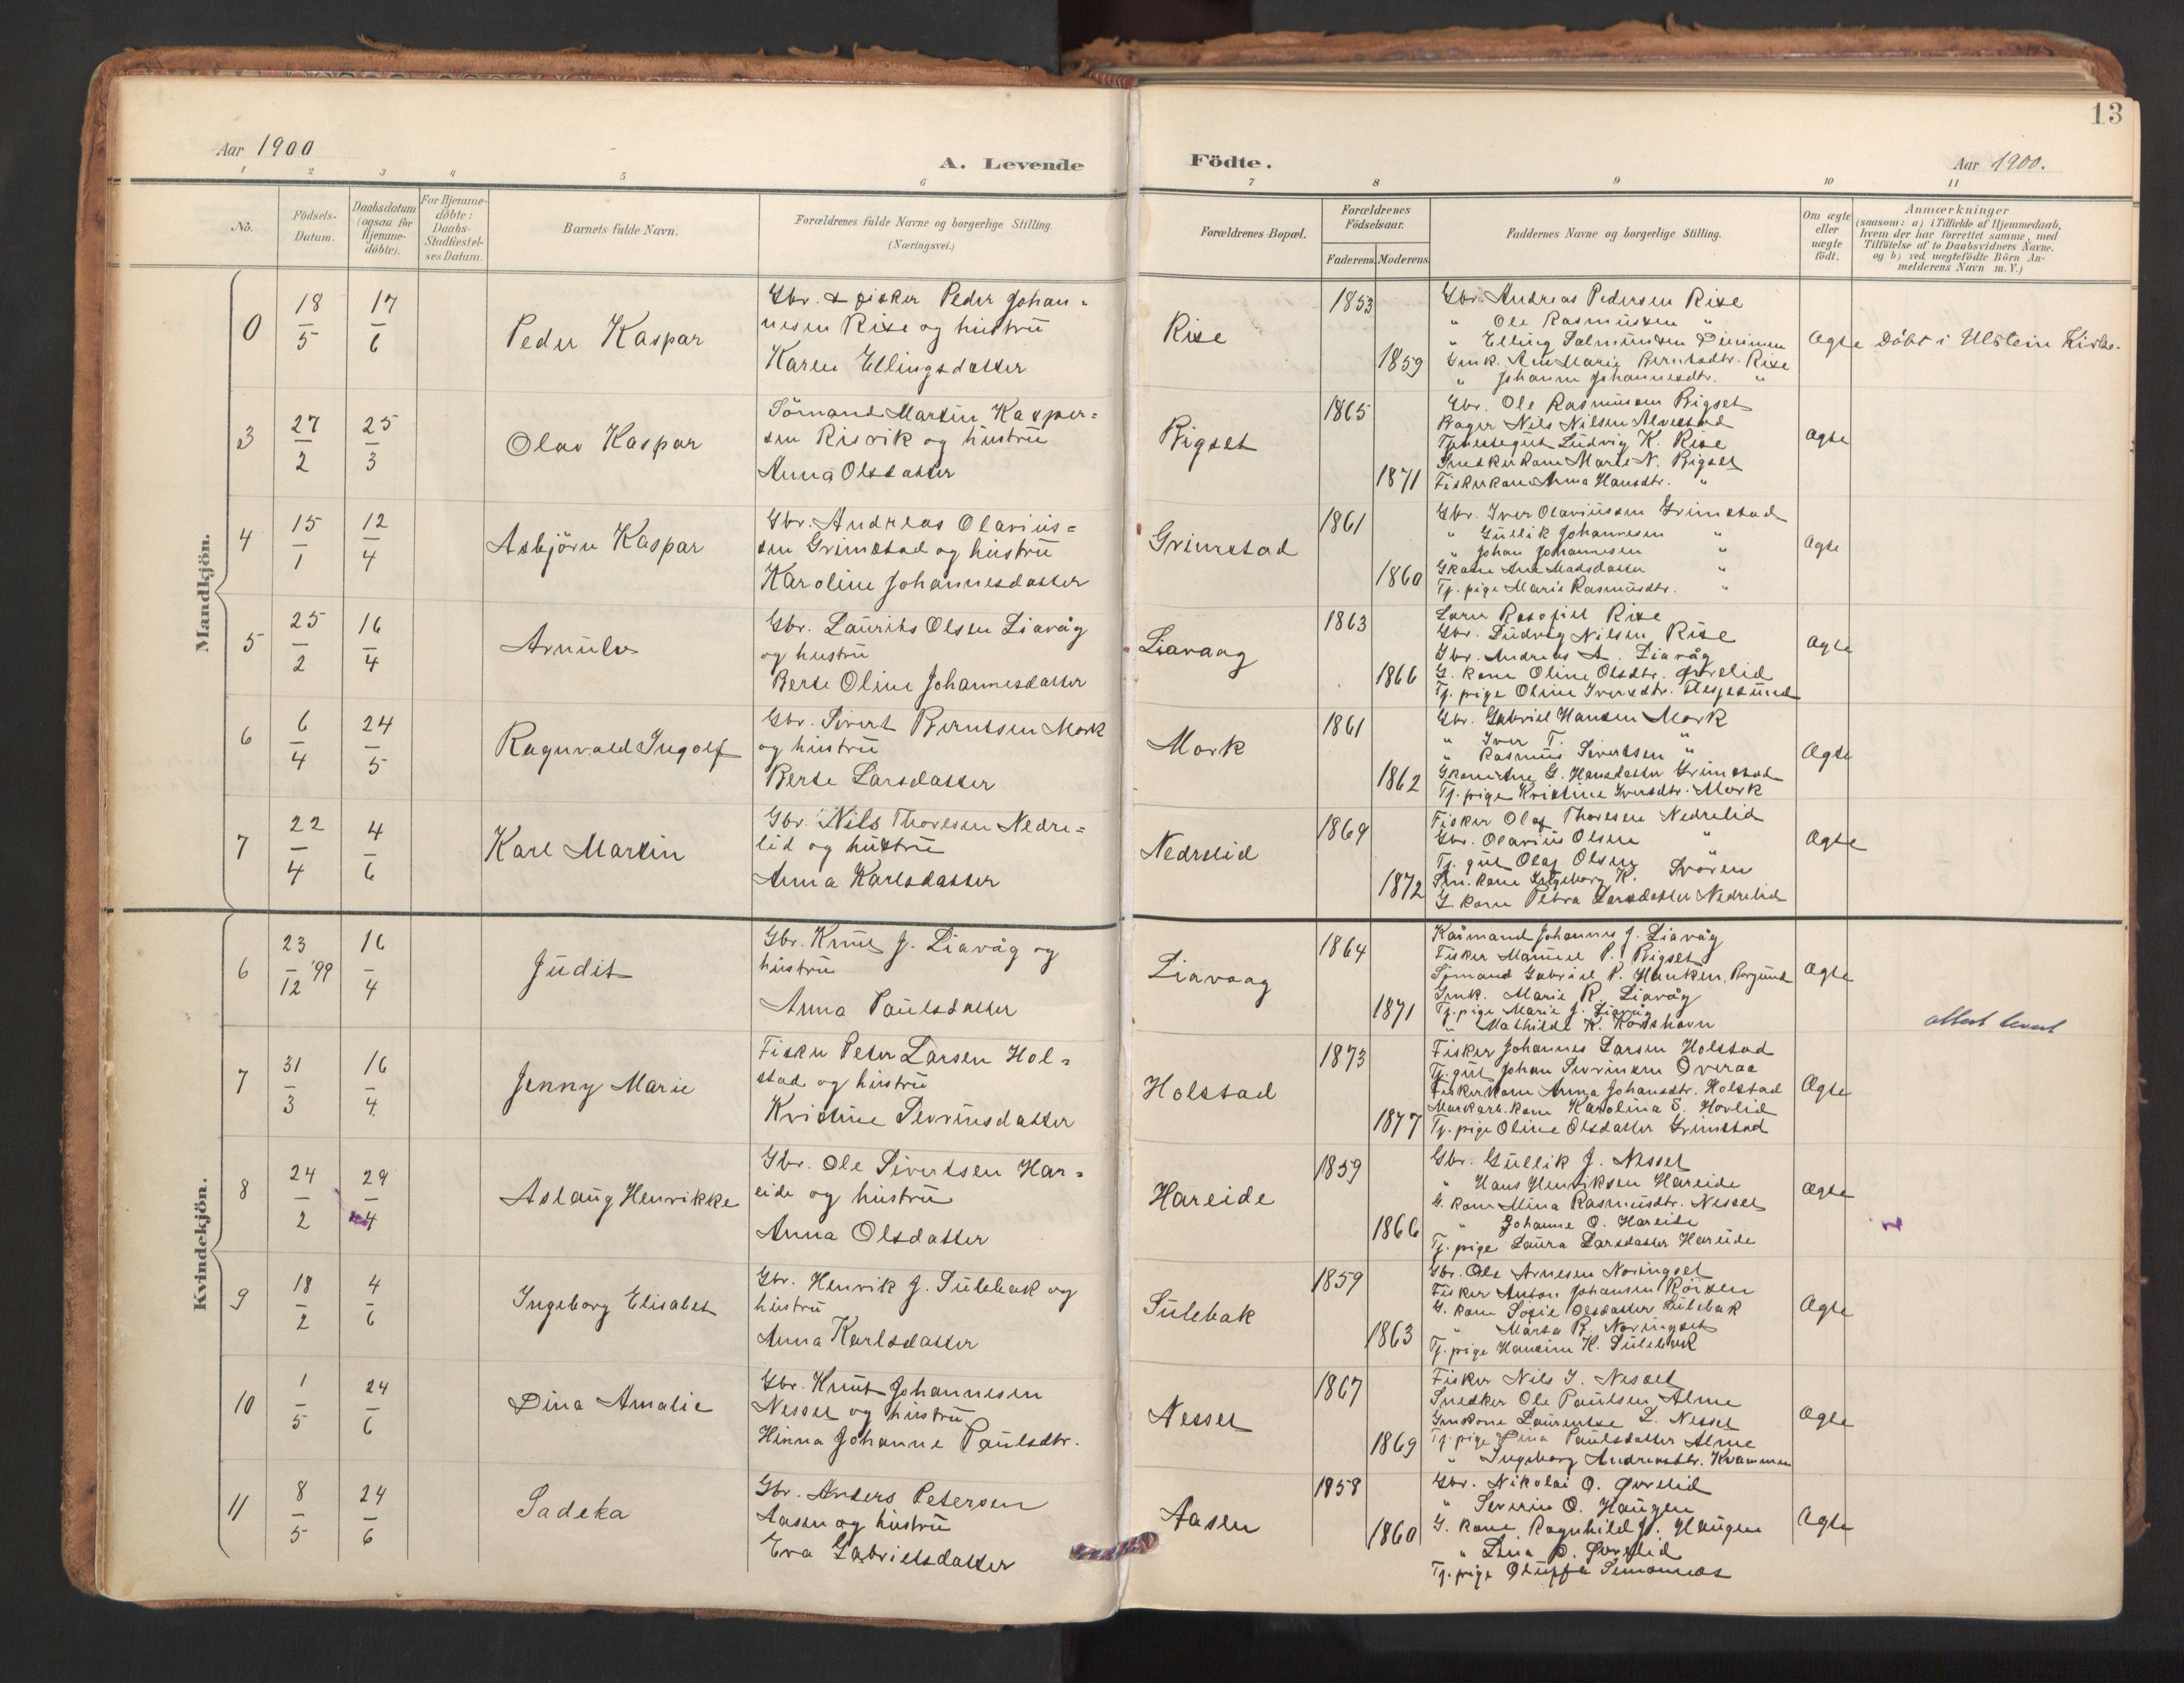 13
Aar 1900
A. Levende Födte.
Aar 1900.
1 2 3 4 5 6 7 8 9 10 11
No.
Födsels-Datum.
Daabsdatum (ogsaa for Hjemme-döbte).
For Hjemme-döbte: Daabs-Stadfæstel-ses Datum.
Barnets fulde Navn.
Forældrenes fulde Navne og borgerlige Stilling.
(Næringsvei.)
Forældrenes Bopæl.
Forældrenes Födselsaar.
Faderens. Moderens.
Faddernes Navne og borgerlige Stilling.
Om ægte eller uægte födt.
Anmærkninger
(saasom: a) i Tilfælde af Hjemmedaab,
hvem der har forrettet samme, med
Tilföielse af to Daabsvidners Navne,
og b) ved uægtefödte Börn An-
melderens Navn m. V.)
Mandkjön.
0 18/5 17/6 Peder Kaspar
Gbr. & fisker Peder Johan=
nesen Rise og hustru
Karen Ellingsdatter
Rise 1853 1859
Gbr. Andreas Pedersen Rise
" Ole Rasmussen "
" Elling Salmundsen
Gmk. Ane Marie Berntsdtr. Rise
" Johanne Johannesdtr. "
Ægte Döbt i Ulstein Kirke.
3 27/2 25/3 Olav Kaspar
Sömand Martin Kasper=
sen Risvik og hustru
Anna Olsdatter
Bigset 1865 1871
Gbr. Ole Rasmussen Bigset
Bager Nils Nilsen Alvestad
Tjenestegut Ludvig K. Rise
Snekkerkone Marte N. Bigset
Fiskerkone Anna Hansdtr. "
Ægte
4 15/1 12/4 Asbjörn Kaspar
Gbr. Andreas Olavius=
sen Grimstad og hustru
Karoline Johannesdatter
Grimstad 1861 1860
Gbr. Iver Olaviussen Grimstad
" Gullik Johannesen "
" Johan Johannesen "
Gkone Ane Madsdatter "
Tj. pige Marie Rasmusdtr. "
Ægte
5 25/2 16/4 Arnulv
Gbr. Laurits Olsen Liavåg
og hustru
Berte Oline Johannesdatter
Liavaag 1863 1866
Lærer Rasofiel Rise
Gbr. Ludvig Nilsen Rise
Gbr. Andreas A. Liavåg
G. kone Oline Olsdtr. Øvrelid
Tj. pige Oline Iversdtr. Flesjesund
Ægte
6 6/4 24/5 Ragnvald Ingolf
Gbr. Sivert Berntsen Mork
og hustru
Berte Larsdatter
Mork 1861 1862
Gbr. Gabriel Hansen Mork
" Iver T. "
" Rasmus Sivertsen "
Gkone Ane G. Hansdatter Grimstad
Tj. pige Kristine Iversdtr. Mork
Ægte
7 22/4 4/6 Karl Martin
Gbr. Nils Thoresen Nedre=
lid og hustru
Anna Karlsdatter
Nedrelid 1869 1872
Fisker Olaf Thoresen Nedrelid
Gbr. Olavius Olsen "
Tj. gut Olaf Olsen
Sm. kone Ingeborg K. Svören
G. kone Petra Larsdatter Nedrelid
Ægte
Kvindekjön.
6 23/12 '99 16/4 Judit
Gbr. Knut J. Liavåg og
hustru
Anna Paulsdatter
Liavaag 1864 1871
Kårmand Johannes J. Liavåg
Fisker Manuel P. Bigset
Sömand Gabriel P. Hauken, Borgund
Gmk. Marie R. Liavåg
Tj. pige Marie J. Liavåg
" Mathilde K. Korshavn
Ægte
attest levert
7 31/3 16/4 Jenny Marie
Fisker Peter Larsen Hol=
stad og hustru
Kristine Sevrinsdatter
Holstad 1873 1877
Fisker Johannes Larsen Holstad
Tj. gut Johan Sevrinsen Overaa
Fiskerkone Anna Johansdtr. Holstad
Markarb. kone Karolina S. Hovlid
Tj. pige Oline Olsdatter Grimstad
Ægte
8 24/2 29/4 Aslaug Henrikke
Gbr. Ole Sivertsen Har=
eide og hustru
Anna Olsdatter
Hareide 1859 1866
Gbr. Gullik J. Nesset
" Hans Henriksen Hareide
G. kone Mina Rasmusdtr. Nesset
" Johanne O. Hareide
Tj. pige Laura Larsdatter Hareide
Ægte
9 18/2 4/6 Ingeborg Elisabet
Gbr. Henrik J. Sulebak og
hustru
Anna Karlsdatter
Sulebak 1859 1863
Gbr. Ole Arnesen Noringset
Fisker Anton Johansen Röisen
G. kone Sofie Olsdatter Sulebak
" Marta B. Noringset
Tj. pige Hansine K. Sulebak
Ægte
10 1/5 24/6 Dina Amalie
Gbr. Knut Johannesen
Nesset og hustru
Hinna Johanne Paulsdtr.
Nesset 1867 1869
Fisker Nils J. Nesset
Snedker Ole Paulsen Alme
Gmkone Laurentse L. Nesset
Tj. pige Dina Paulsdatter Alme
" Ingeborg Andreasdtr. Kvammen
Ægte
11 8/5 24/6 Sadeka
Gbr. Anders Petersen
Aasen og hustru
Eva Gabrielsdatter
Aasen 1858 1860
Gbr. Nikolai O. Øvrelid
" Severin O. Haugen
G. kone Ragnhild J. Haugen
" Lina P. Øvrelid
Tj. pige Oluffa Simonnes
Ægte